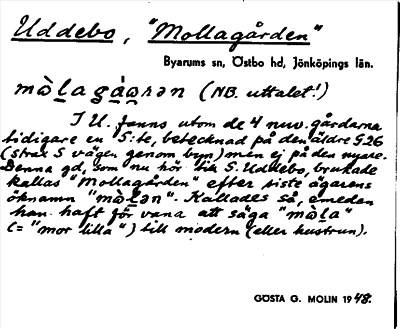 Uddebo, "Mollagården"
Byarums sn, Östbo hd, Jönköpings län.
mòlagárən (NB. uttalet!)
I U. fanns utom de 4 nuv. gårdarna
tidigare en 5:te, betecknad på den äldre G.26
(strax S vägen genom byn) men ej på den nyare.
Denna gd, som nu hör till S. Uddebo, brukade
kallas "Mollagården" efter siste ägarens
öknamn "mòlən". Kallades så, emedan
han haft för vana att säga "mòla"
(= "mor lilla") till modern (eller hustrun).
GÖSTA G. MOLIN 1948.